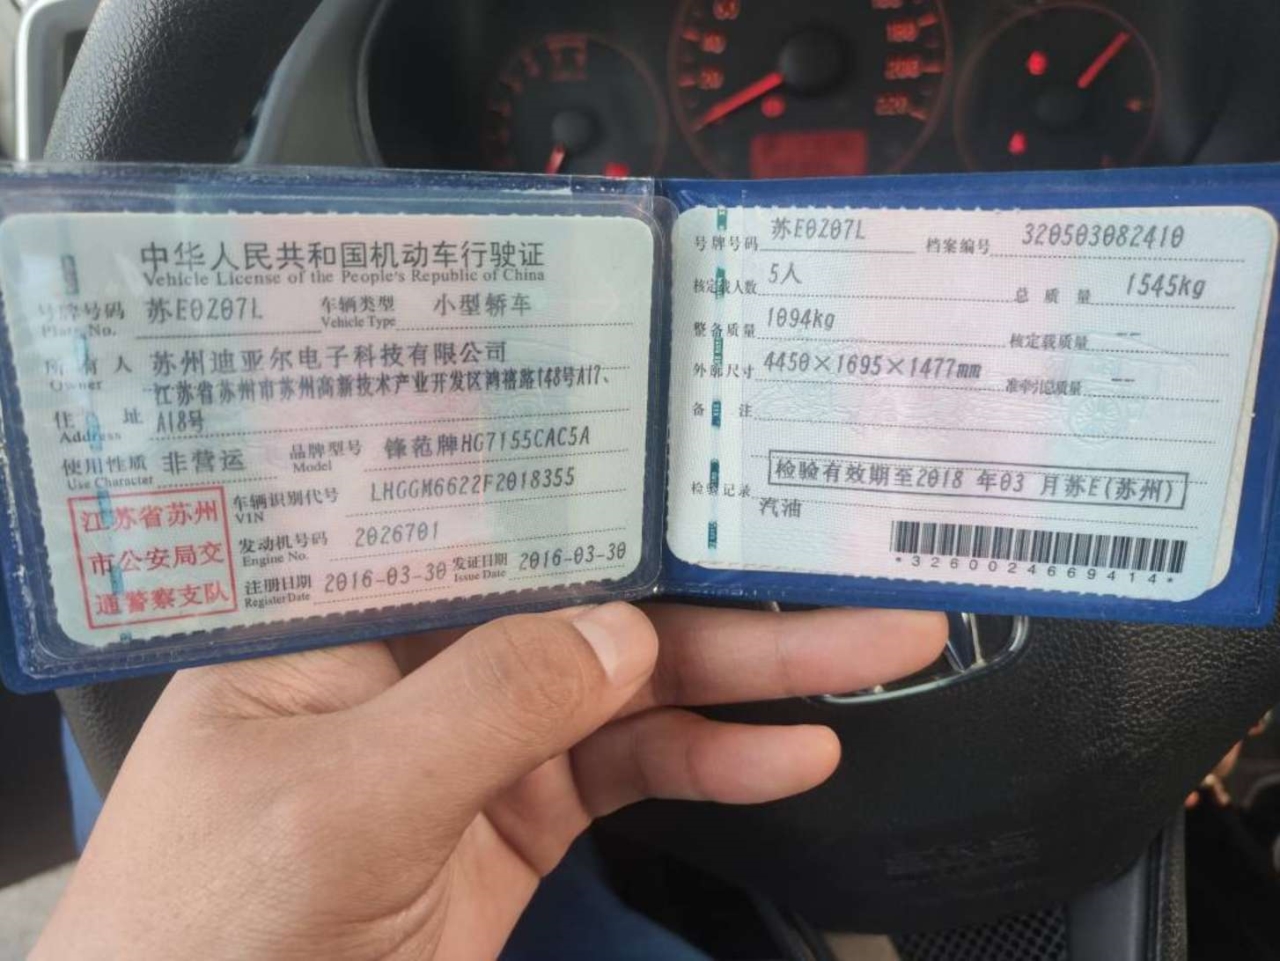 中华人民共和国机动车行驶证
Vehicle License of the People's Republic of China
号牌号码 苏E0Z07L 车辆类型 小型轿车
Plate No. Vehicle Type
所有人 苏州迪亚尔电子科技有限公司
Owner
江苏省苏州市苏州高新技术产业开发区鸿禧路148号A17、
住址 A18号
Address
使用性质 非营运 品牌型号 锋范牌HG7155CAC5A
Use Character Model
江苏省苏州
市公安局交
通警察支队
车辆识别代号 LHGGM6622F2018355
VIN
发动机号码 2026701
Engine No.
注册日期 2016-03-30 发证日期 2016-03-30
Register Date Issue Date
号牌号码 苏E0Z07L 档案编号 320503082410
核定载人数 5人 总质量 1545kg
整备质量 1094kg 核定载质量 --
外廓尺寸 4450×1695×1477mm 准牵引总质量 --
备注
检验有效期至2018 年03 月苏E(苏州)
检验记录
汽油
*3260024669414*
180
200
220
20